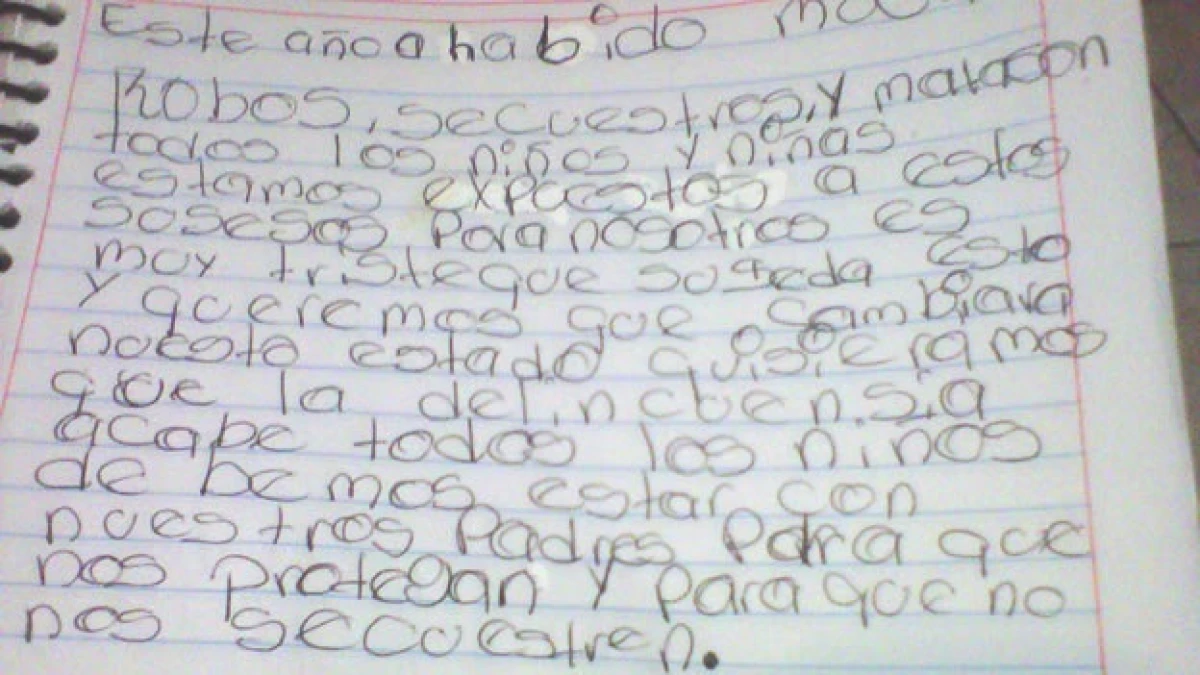 Este año a habido
Robos, secuestros, y matacon
todos los niños y niñas
estamos expuestos a estos
sosesos, para nosotros es
muy triste que soseda esto
y queremos que sambiara
nuesto estado quisieramos
que la delincuensia
acabe todos los niños
de bemos estar con
nuestros Padres Para que
nos protegan y para que no
nos secuestren.